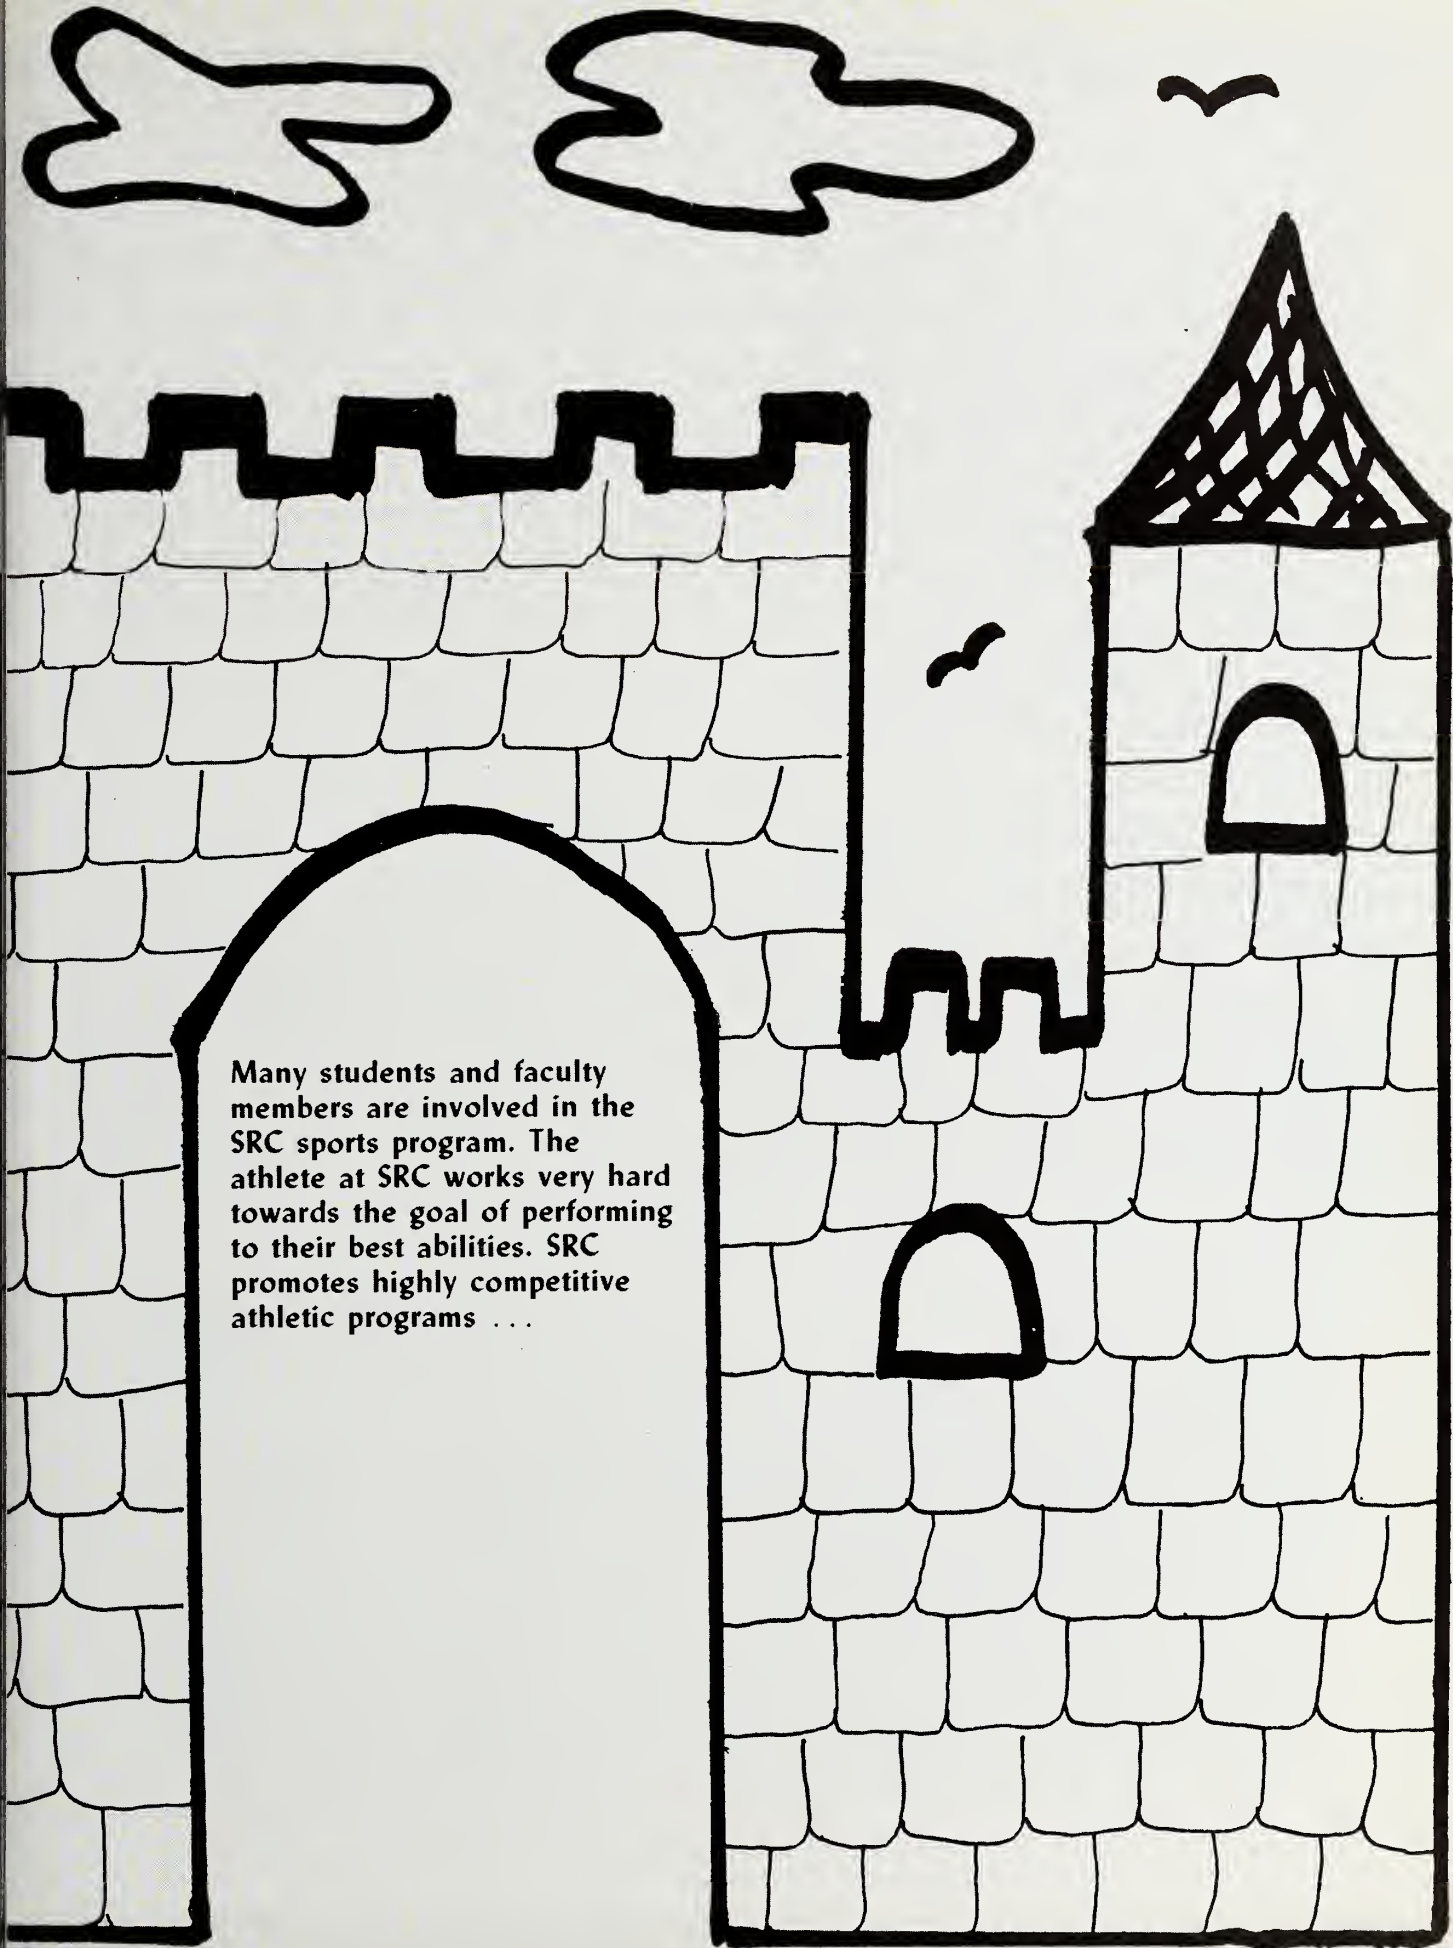 Many students and faculty
members are involved in the
SRC sports program. The
athlete at SRC works very hard
towards the goal of performing
to their best abilities. SRC
promotes highly competitive
athletic programs ...